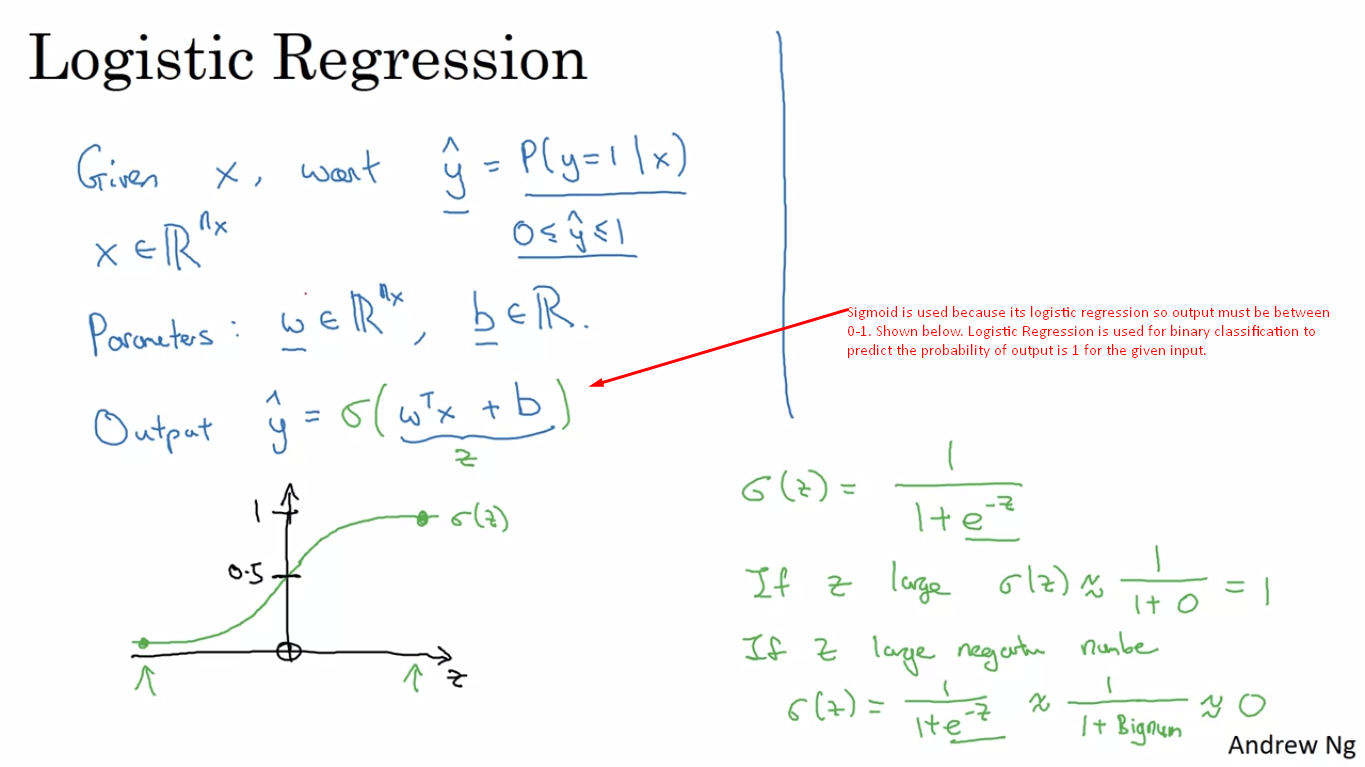 Logistic Regression
Given x, want ŷ = P(y=1|x)
x ∈ ℝⁿˣ
0 ≤ ŷ ≤ 1
Parameters: w ∈ ℝⁿˣ, b ∈ ℝ.
Output ŷ = σ(wᵀx + b)
z
Sigmoid is used because its logistic regression so output must be between
0-1. Shown below. Logistic Regression is used for binary classification to
predict the probability of output is 1 for the given input.
1
σ(z)
0.5
z
σ(z) = 1 / (1 + e⁻ᶻ)
If z large σ(z) ≈ 1 / (1 + 0) = 1
If z large negative number
σ(z) = 1 / (1 + e⁻ᶻ) ≈ 1 / (1 + Bignum) ≈ 0
Andrew Ng